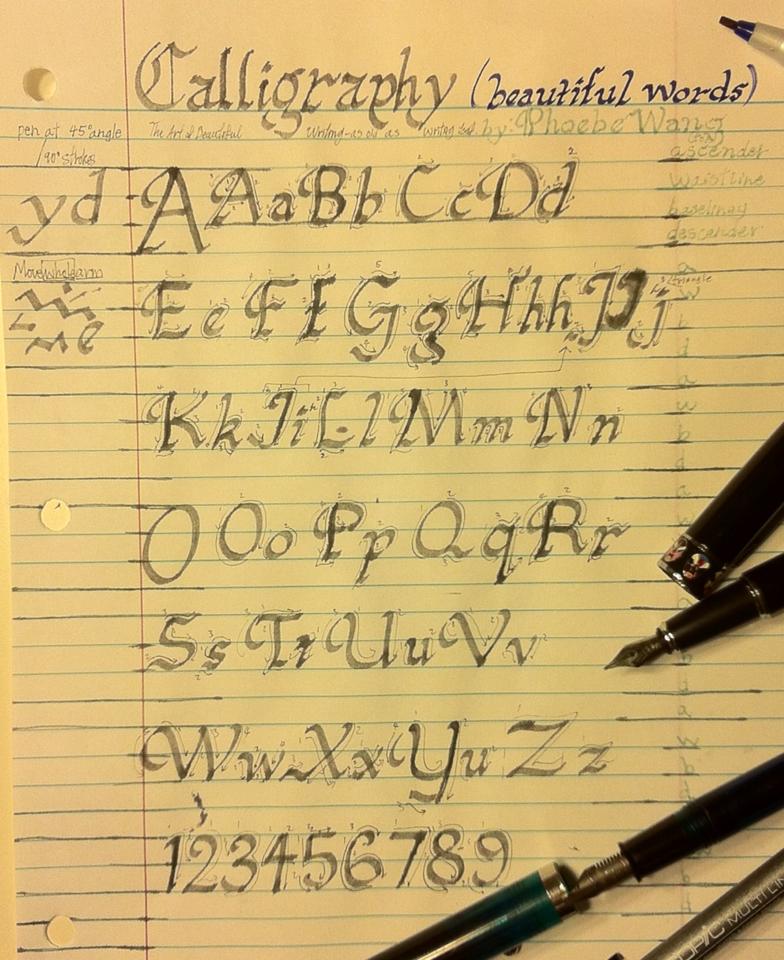 Calligraphy (beautiful words)
pen at 45° angle
/90° strokes
The Art of Beautiful Writing-as old as writing itself by: Phoebe Wang
ascender
waistline
baseline
descender
yd
A A a B b C c D d
Move whole arm
E e F f G g H h h J J j
K k I i L l M m N n
O O o P p Q q R r
S s T t U u V v
W w X x Y u Z z
1 2 3 4 5 6 7 8 9
COPIC MULTI LIN